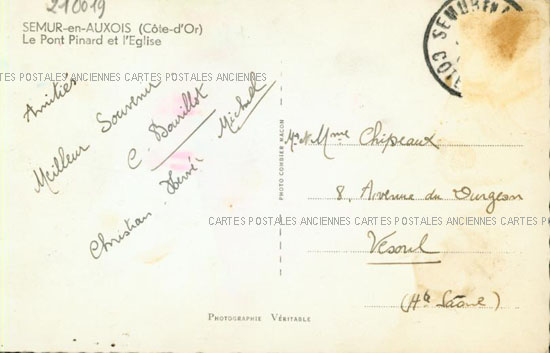 210019
SEMUR-en-AUXOIS (Côte-d'Or)
Le Pont Pinard et l'Eglise
SEMUR EN
COTE
CARTES POSTALES ANCIENNES CARTES POSTALES ANCIENNES CARTES POSTALES ANCIENNES CARTES POSTALES
Amitiés
Meilleur Souvenir
C. Bouillot
Michel
Christian. Hervé
PHOTO COMBIER MACON
Mr & Mme Chipeaux
8, Avenue du Durgeon
CARTES POSTALES ANCIENNES CARTES POSTALES ANCIENNES CARTES POSTALES
Vesoul
(Hte Saône)
PHOTOGRAPHIE VÉRITABLE